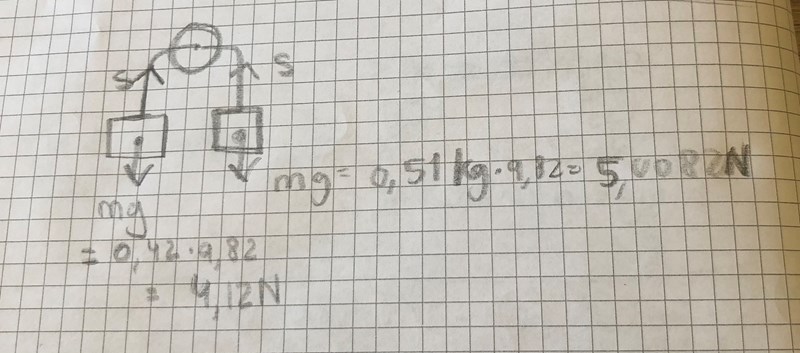 S
S
mg = 0,51 kg · 9,82 = 5,0082N
mg
= 0,42 · 9,82
= 4,12N